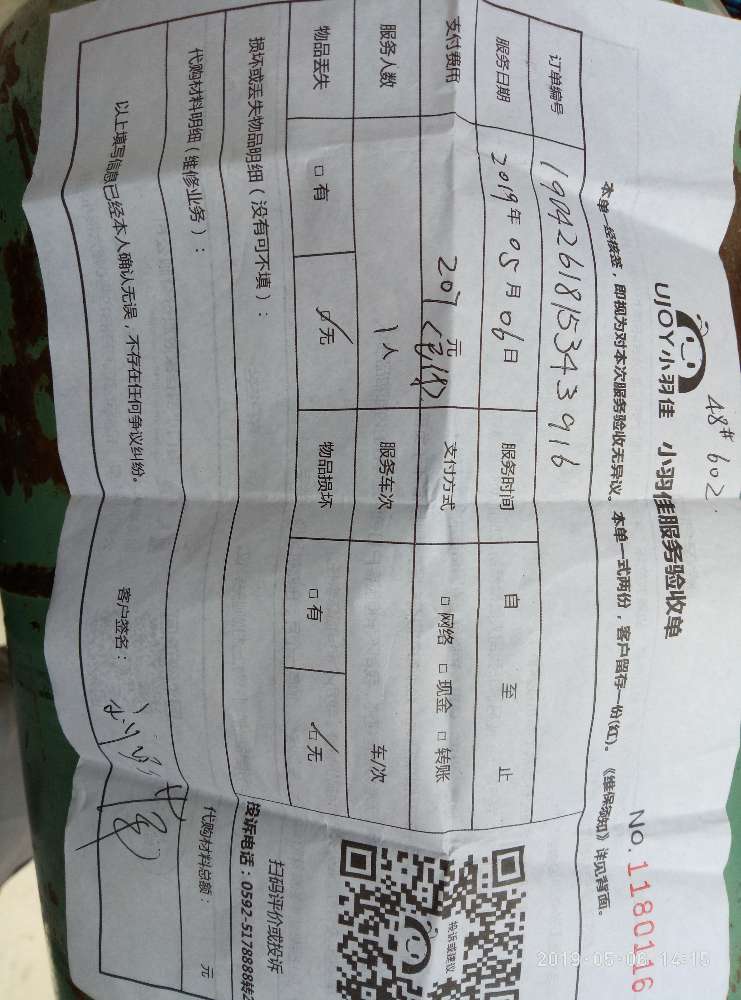 48# 602
UJOY小羽佳 小羽佳服务验收单
No.1180116
本单一经核签，即视为对本次服务验收无异议。本单一式两份，客户留存一份(红)。《维保须知》详见背面。
订单编号 190426181534 3916
服务日期 2019年05月06日 服务时间 自 至 止
支付费用 207元 支付方式 □网络 □现金 □转账
服务人数 1人 服务车次 车/次
物品丢失 □有 ☑无 物品损坏 □有 ☑无
损坏或丢失物品明细（没有可不填）：
代购材料明细（维修业务）：
代购材料总额： 元
以上填写信息已经本人确认无误，不存在任何争议纠纷。 客户签名：
投诉或建议
扫码评价或投诉
投诉电话：0592-5178888转2
2019-05-06 14:15